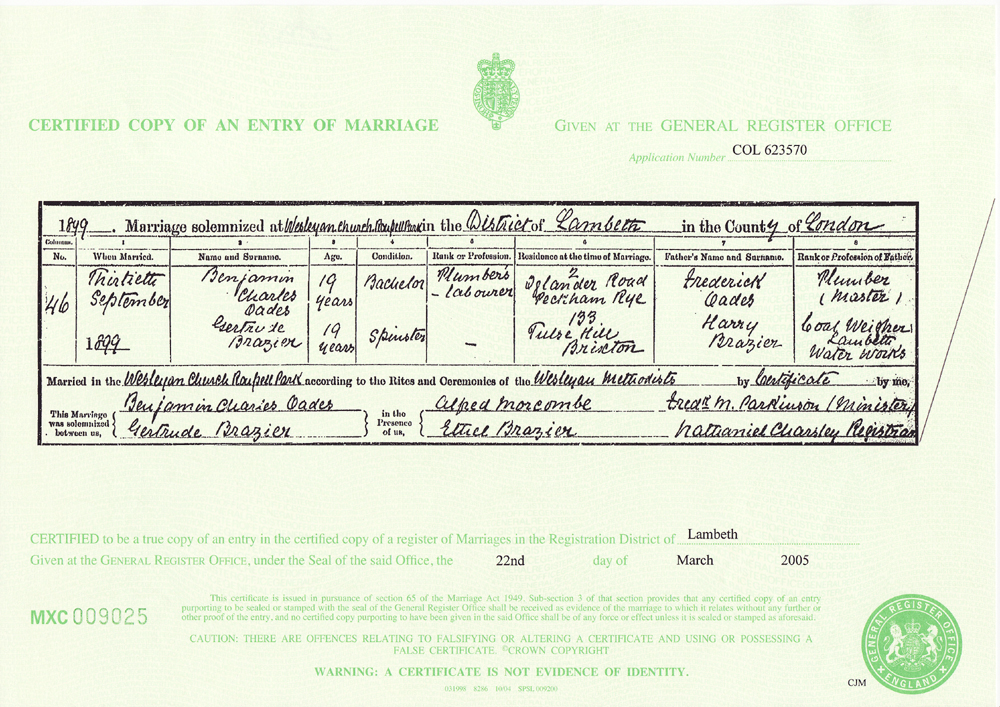 CERTIFIED COPY OF AN ENTRY OF MARRIAGE
GIVEN AT THE GENERAL REGISTER OFFICE
Application Number COL 623570
1899. Marriage solemnized at Wesleyan Church Roupell Park in the District of Lambeth in the County of London
Columns. 1 2 3 4 5 6 7 8
No. When Married. Name and Surname. Age. Condition. Rank or Profession. Residence at the time of Marriage. Father's Name and Surname. Rank or Profession of Father.
46
Thirtieth September 1899
Benjamin Charles Oades
19 years
Bachelor
Plumber's - labourer
2 Road Peckham Rye
Frederick Oades
Plumber (Master)
Gertrude Brazier
19 years
Spinster
-
133 Tulse Hill Brixton
Harry Brazier
Coal Weigher Lambeth Water Works
Married in the Wesleyan Church Roupell Park according to the Rites and Ceremonies of the Wesleyan Methodists by Certificate by me,
This Marriage was solemnized between us,
Benjamin Charles Oades
Gertrude Brazier
in the Presence of us,
Alfred Morcombe
Ethel Brazier
Fredk M. Parkinson (Minister)
Nathaniel Charsley Registrar
CERTIFIED to be a true copy of an entry in the certified copy of a register of Marriages in the Registration District of Lambeth
Given at the GENERAL REGISTER OFFICE, under the Seal of the said Office, the 22nd day of March 2005
MXC 009025
This certificate is issued in pursuance of section 65 of the Marriage Act 1949. Sub-section 3 of that section provides that any certified copy of an entry
purporting to be sealed or stamped with the seal of the General Register Office shall be received as evidence of the marriage to which it relates without any further or
other proof of the entry, and no certified copy purporting to have been given in the said Office shall be of any force or effect unless it is sealed or stamped as aforesaid.
CAUTION: THERE ARE OFFENCES RELATING TO FALSIFYING OR ALTERING A CERTIFICATE AND USING OR POSSESSING A
FALSE CERTIFICATE. ©CROWN COPYRIGHT
WARNING: A CERTIFICATE IS NOT EVIDENCE OF IDENTITY.
031998 8286 10/04 SPSL 009200
GENERAL REGISTER OFFICE
ENGLAND
CJM